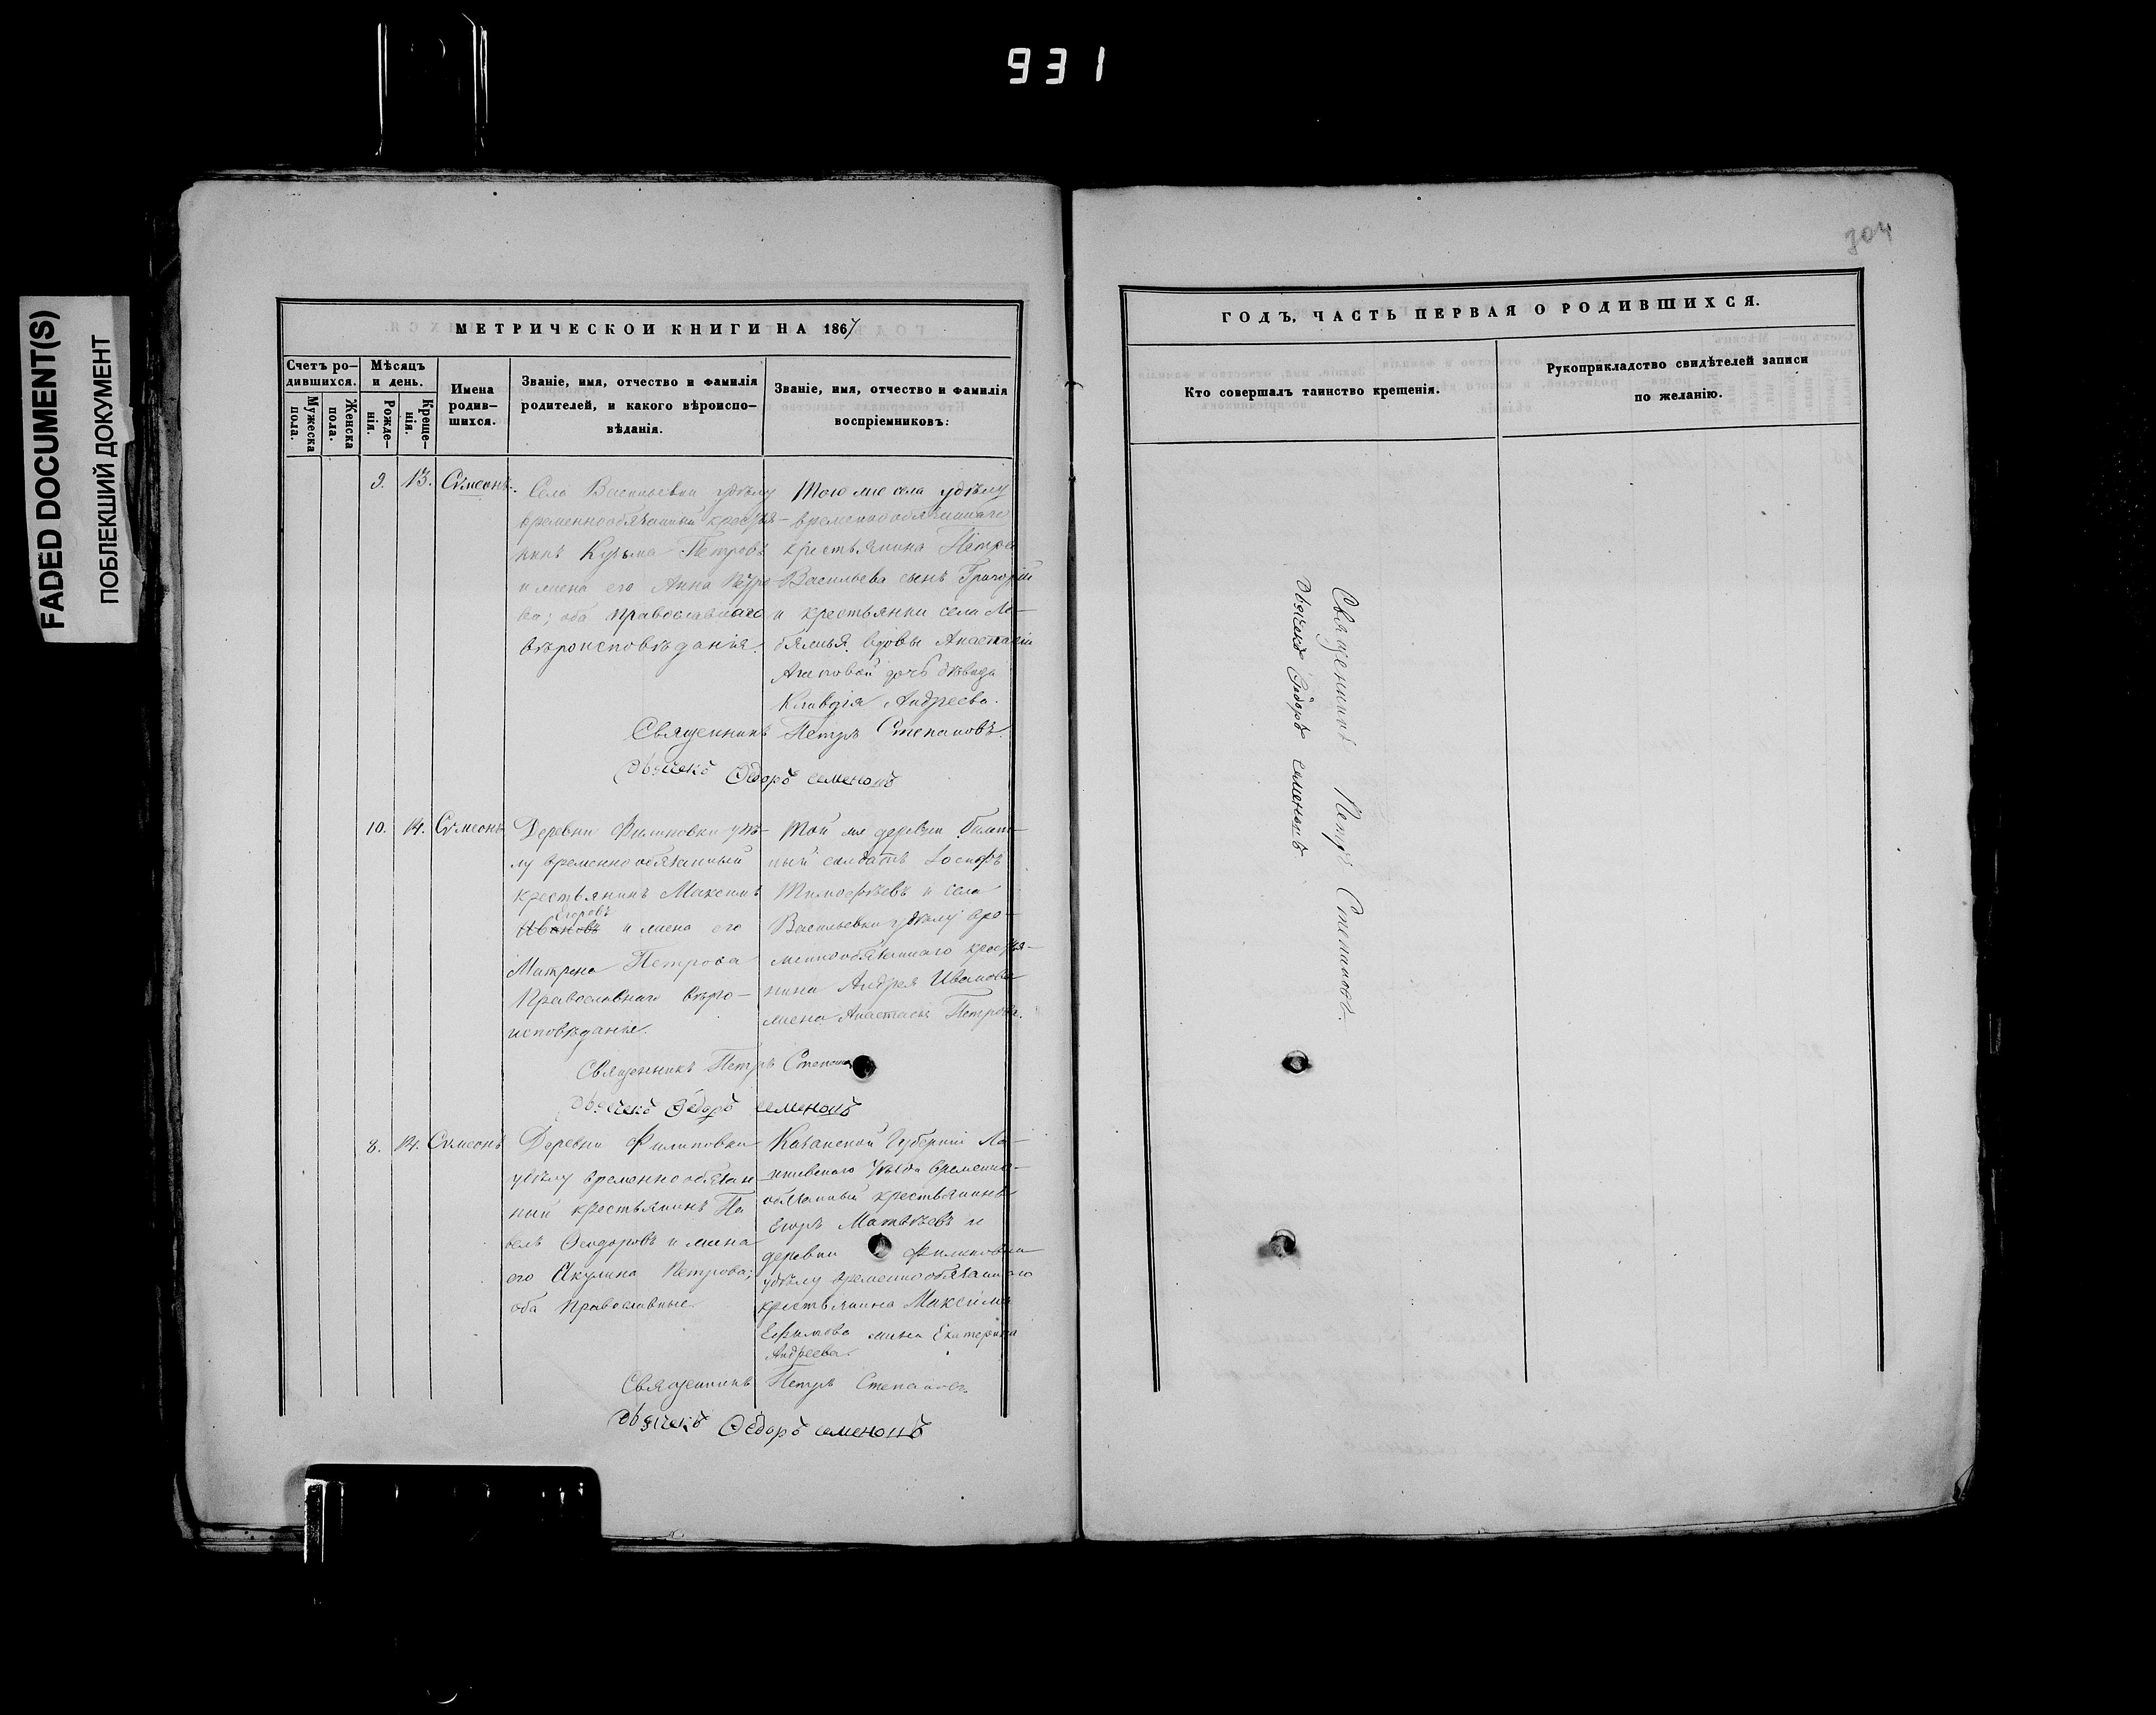 931
FADED DOCUMENT(S)
ПОБЛЕКШИЙ ДОКУМЕНТ
304
МЕТРИЧЕСКОЙ КНИГИ НА 1867
Счетъ ро-
дившихся.
Мужеска
пола.
Женска
пола.
Мѣсяцъ
и день.
Рожде-
нія.
Креще-
нія.
Имена
родив-
шихся.
Званіе, имя, отчество и фамилія
родителей, и какого вѣроиспо-
вѣданія.
Званіе, имя, отчество и фамилія
воспріемниковъ:
9. 13. Сѵмеонъ.
Села Васильевки удѣлу
временнообязанный крестья-
нинъ Кузьма Петровъ
и жена его Анна Петро
ва; оба православнаго
вѣроисповѣданія.
Того же села удѣлу
временнообязаннаго
крестьянина Петра
Васильева сынъ Григорій
и крестьянки села
вдовы Анастасіи
дочь дѣвица
Клавдія Андреева.
Священникъ Петръ Степановъ.
Дьячекъ Ѳедоръ Семеновъ
10. 14. Сѵмеонъ
Деревни Филиповки удѣ-
лу временнообязанный
крестьянинъ Максимъ
Егоровъ
Ивановъ и жена его
Матрена Петрова
Православнаго вѣро-
исповѣданія.
Той же деревни билет-
ный солдатъ Іосифъ
Тимофѣевъ и села
Васильевки удѣлу вре-
меннообязаннаго крестья-
нина Андрея Иванова
жена Анастасія Петрова.
Священникъ Петръ Степановъ
Дьячекъ Ѳедоръ Семеновъ
8. 14. Сѵмеонъ
Деревни Филиповки
удѣлу временнообязан
ный крестьянинъ Па
велъ Ѳеодоровъ и жена
его Акулина Петрова;
оба Православные.
Казанской Губерніи Ла-
ишевскаго Уѣзда временно-
обязанный крестьянинъ
Егоръ Матвѣевъ и
деревни Филиповки
удѣлу временнообязаннаго
крестьянина Максима
Ефимова жена Екатерина
Андреева.
Священникъ Петръ Степановъ.
Дьячекъ Ѳедоръ Семеновъ
ГОДЪ, ЧАСТЬ ПЕРВАЯ О РОДИВШИХСЯ.
Кто совершалъ таинство крещенія.
Рукоприкладство свидѣтелей записи
по желанію.
Священникъ Петръ Степановъ.
Дьячекъ Ѳедоръ Семеновъ